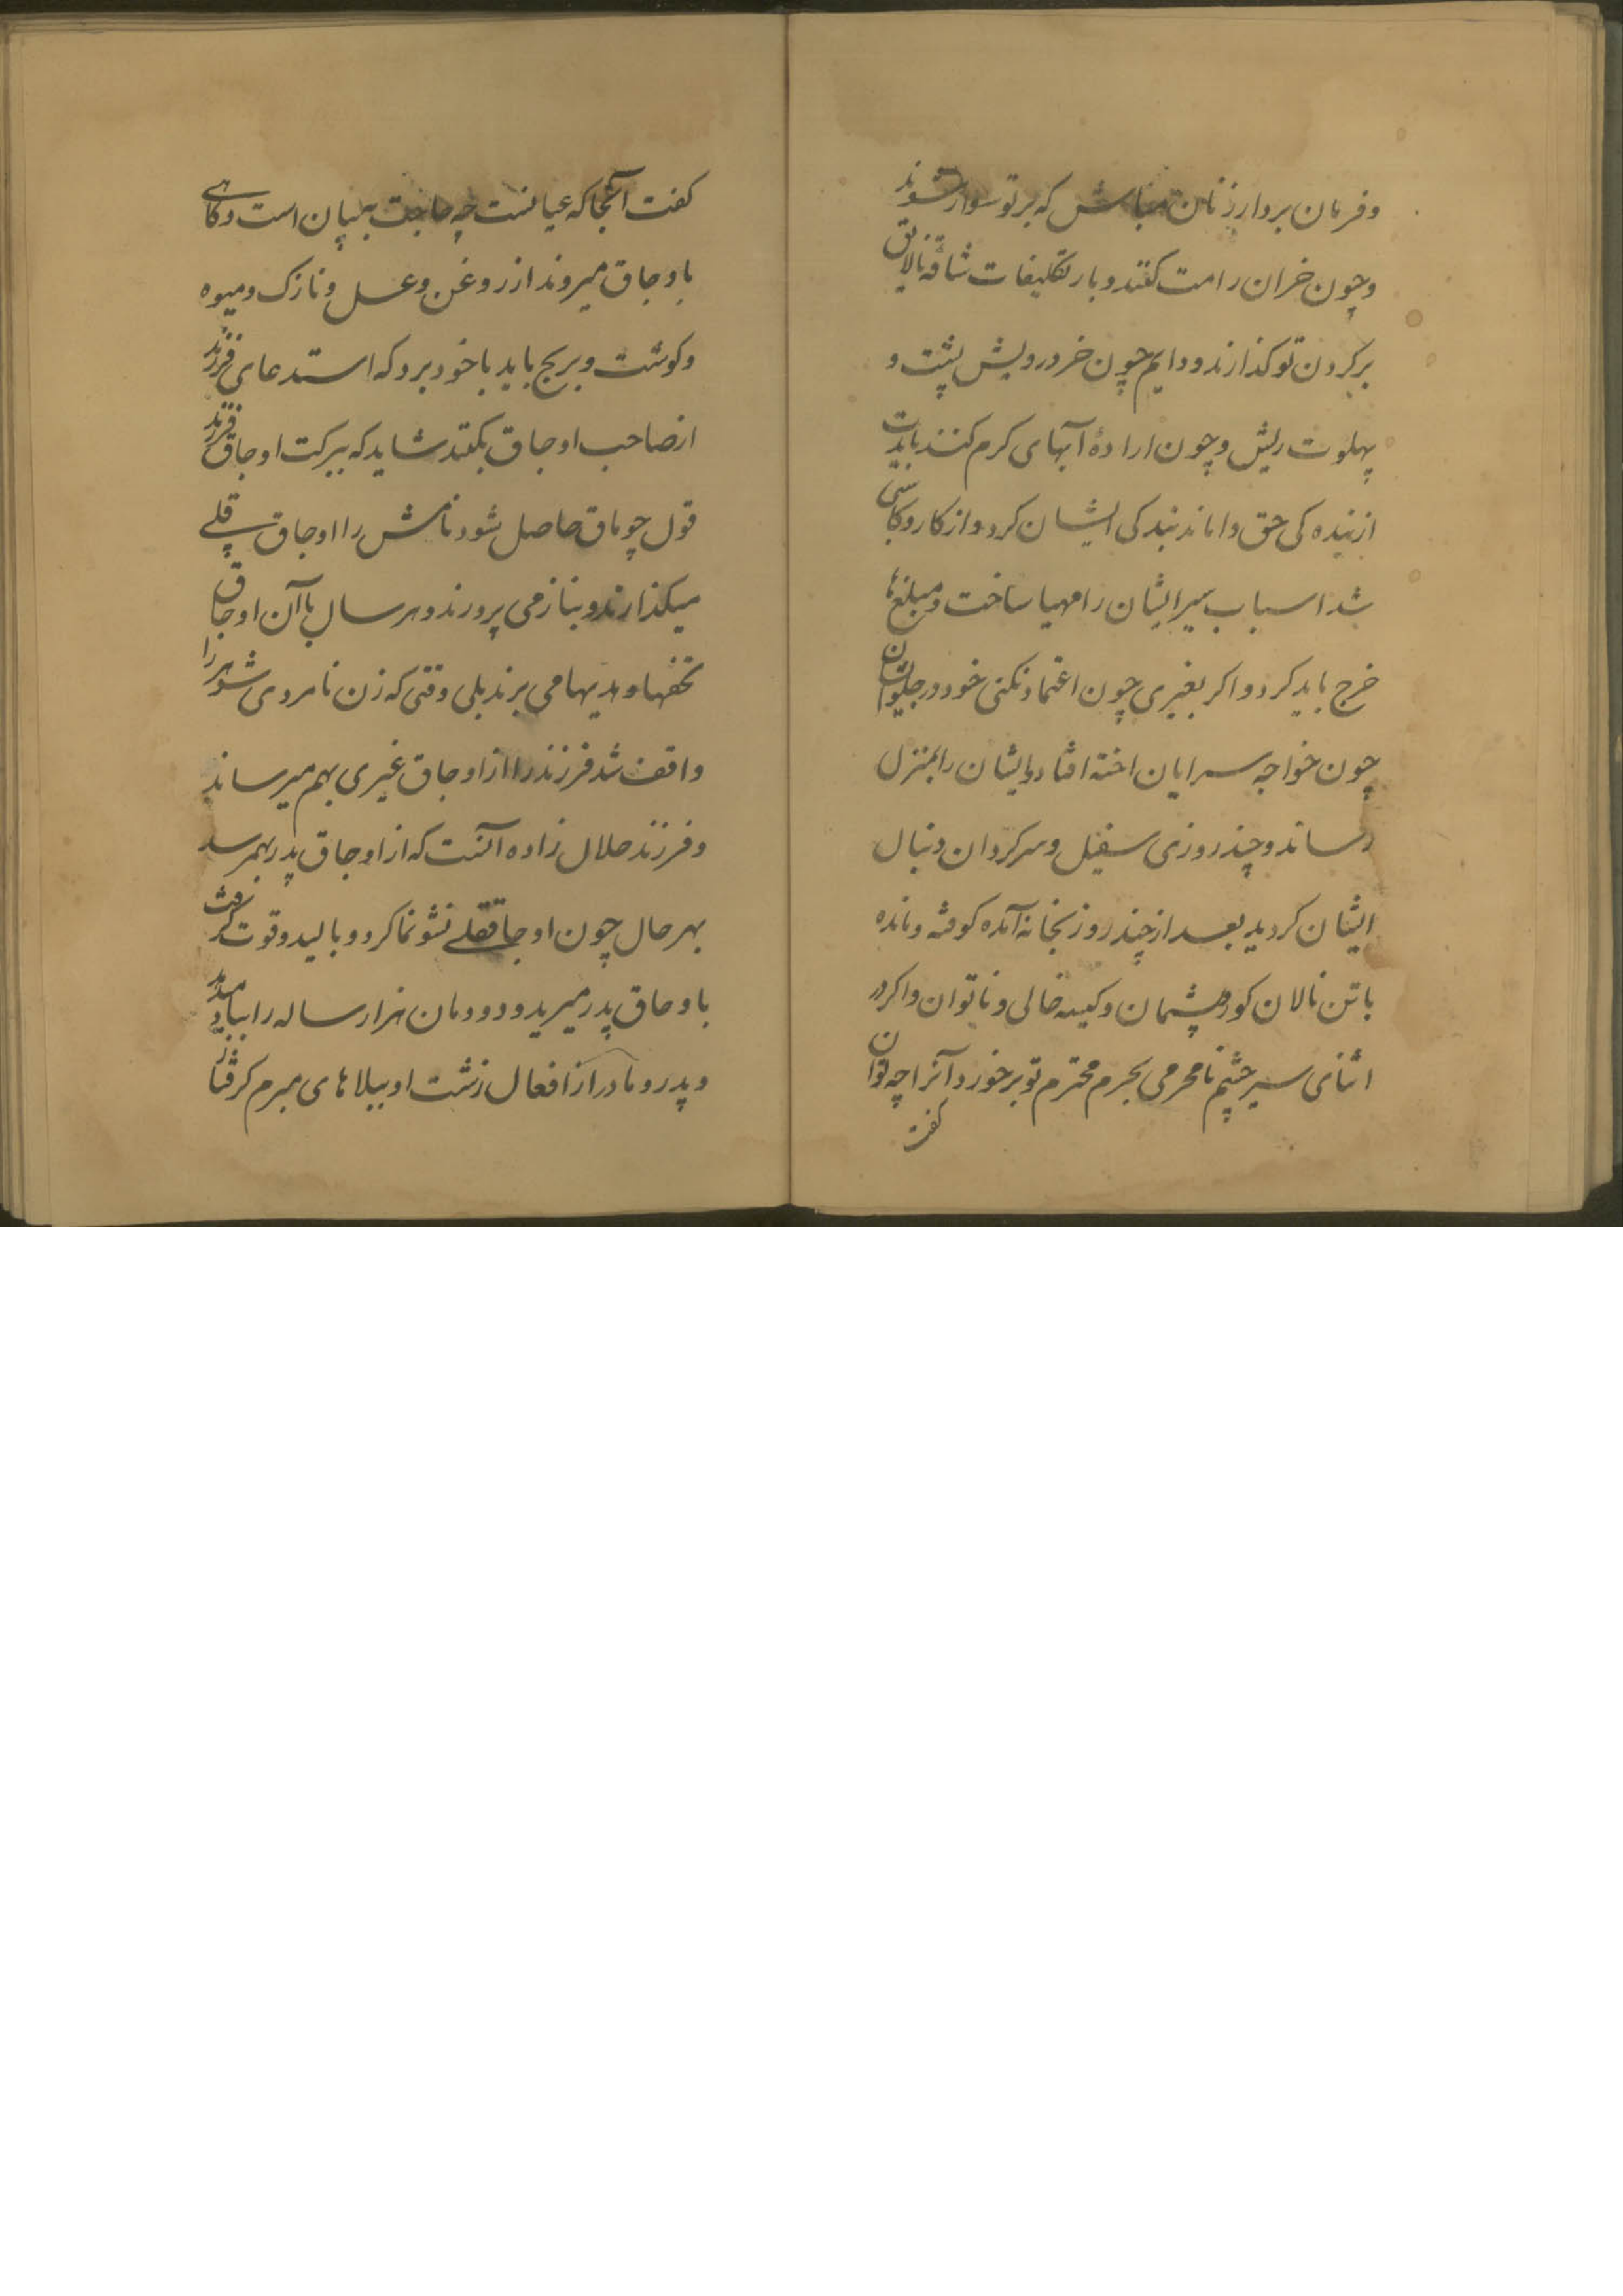 وفرمان بردار زنان مباش که بر تو سوار شوند
وچون خران رامت کنند وبار تکلیفات شاقهٔ نالایق
بر کردن تو کذارند ودایم چون خر درویش پشت و
پهلوت ریش وچون ارادهٔ آبهای کرم کنند بایدت
از بنده کی حق واماند بندکی ایشان کرد واز کار وکاسبی
شد اسباب سیر ایشان را مهیا ساخت ومبلغ‌ها
خرج باید کرد واکر بغیری چون اعتماد نکنی خود در جلوشان
چون خواجه سرایان اخته افتاد وایشان را بمنزل
رساند وچند روزی سفیل وسرکردان دنبال
ایشان کردید بعد از چند روز بخانه آمده کوفته ومانده
با تن نالان کور وپشیمان وکیسه خالی وناتوان واکر در
اثنای سیر چشم نامحرمی بحرم محترم تو بر خورد آنرا چه توان
کفت
کفت آنجا که عیانست چه حاجت ببیان است وکاهی
باوجاق میروند از روغن وعسل ونازک ومیوه
وکوشت وبرنج باید با خود برد که استدعای فرزند
از صاحب اوجاق بکنند شاید که ببرکت اوجاق فرزند
قول چوماق حاصل شود نامش را اوجاق قلی
میکذارند وبناز می پرورند وهر سال باآن اوجاق
تحفها وهدیها می برند بلی وقتی که زن نامردی شوهر را
واقف شد فرزند را از اوجاق غیری بهم میرساند
وفرزند حلال زاده آنست که از اوجاق پدر بهمرسد
بهر حال چون اوجاققلی نشو نما کرد وبالید وقوت کرفت
باوجاق پدر میرید ودودمان هزار ساله را بباد میدهد
وپدر ومادر از افعال زشت او ببلاهای مبرم کرفتار